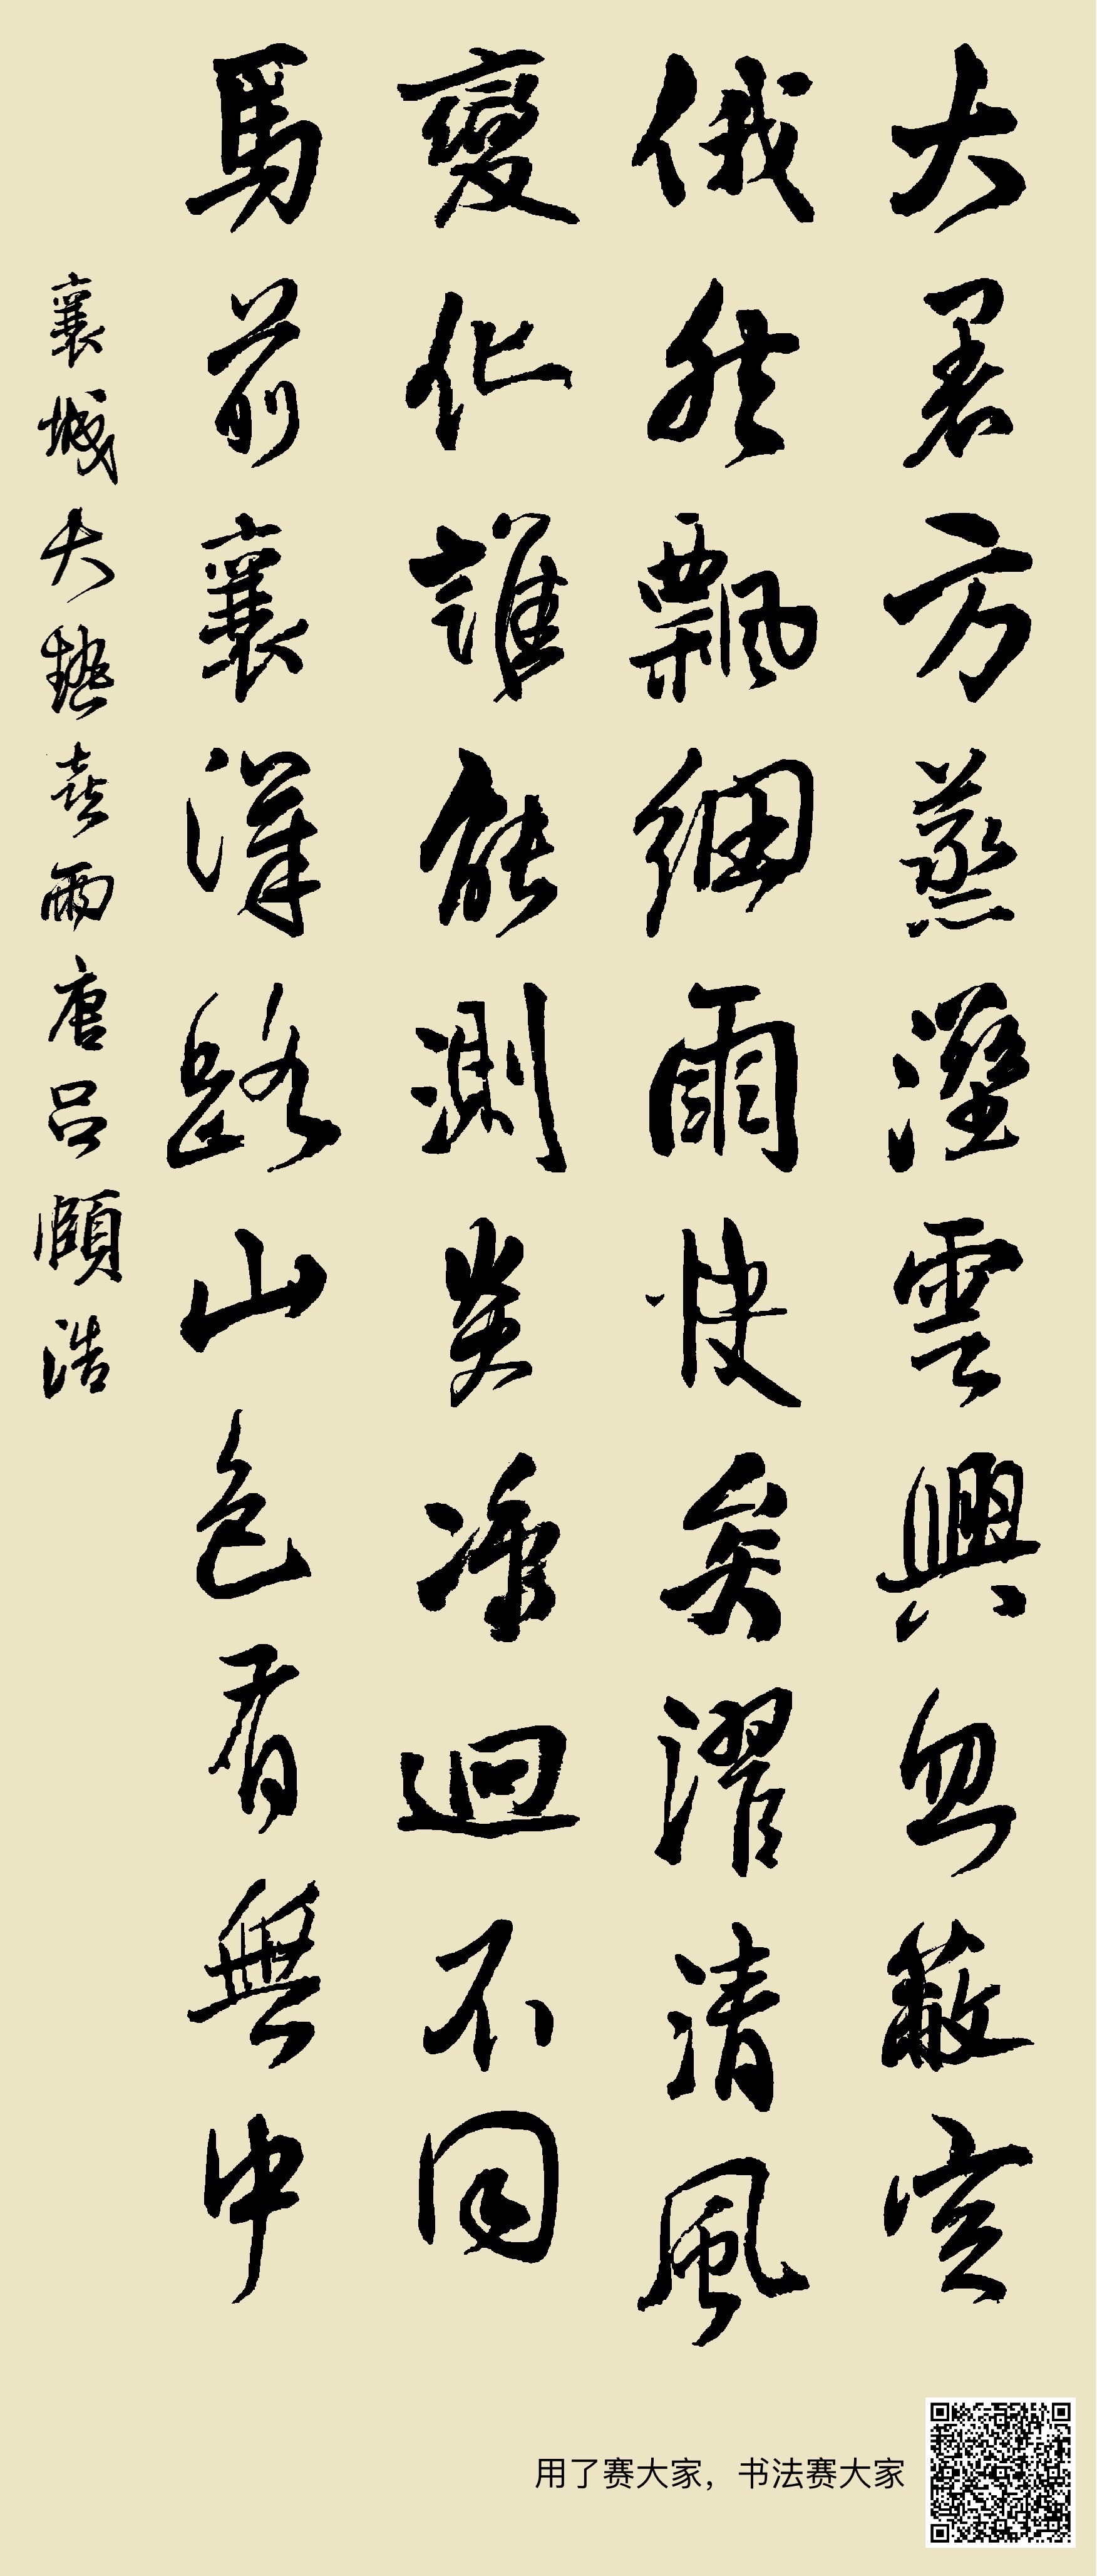 大暑方蒸溼雲興忽蔽空
俄然飄細雨快矣濯清風
變化誰能測炎凉迥不同
馬前襄漢路山色有無中
襄城大熱喜雨唐吕頤浩
用了赛大家，书法赛大家